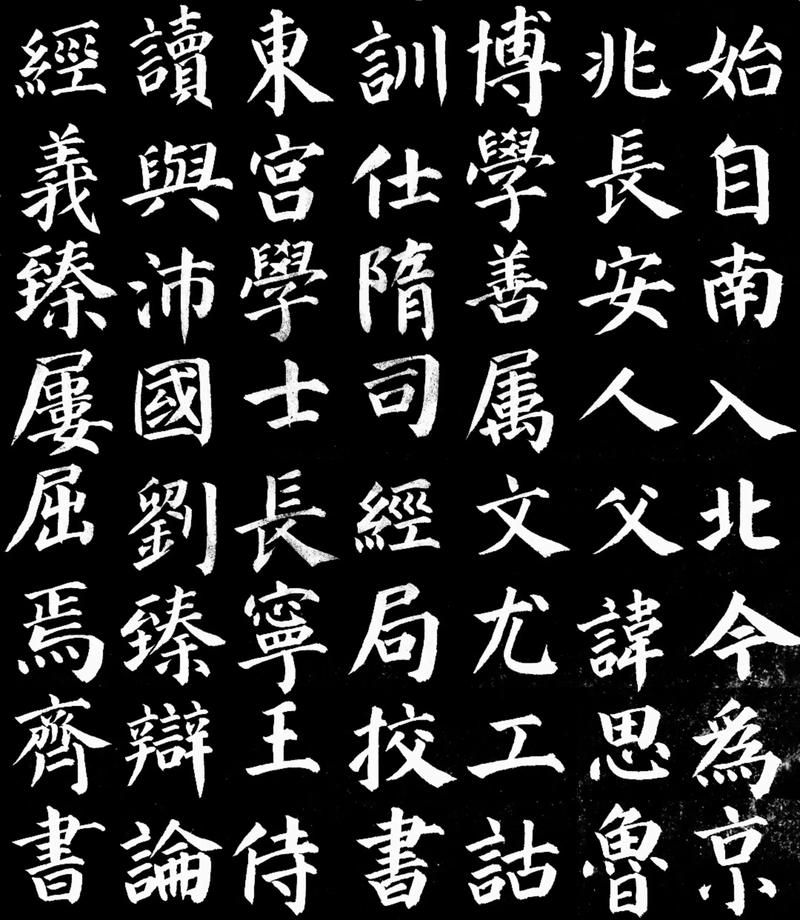 始自南入北今爲京
兆長安人父諱思魯
博學善属文尤工詁
訓仕隋司經局挍書
東宮學士長寧王侍
讀與沛國劉臻辯論
經義臻屢屈焉齊書